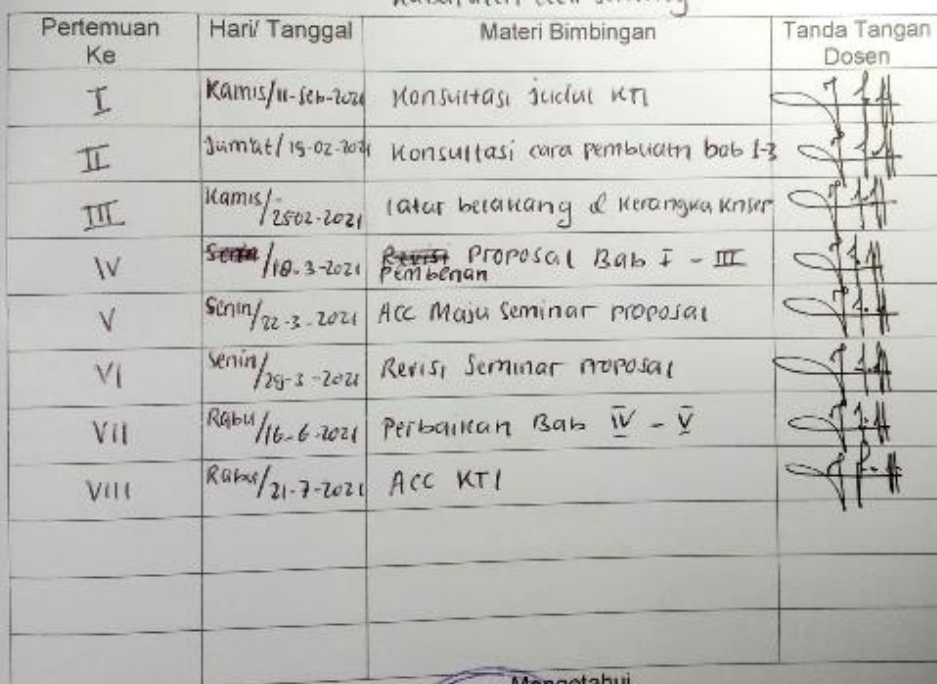 Pertemuan Ke
Hari/ Tanggal
Materi Bimbingan
Tanda Tangan Dosen
I Kamis/11-Feb-2021 Konsultasi judul KTI
II Jum'at/19-02-2021 Konsultasi cara pembuatn bab 1-3
III Kamis/2502-2021 latar belakang & kerangka
IV /18-3-2021 Revisi Proposal Bab I - III
V Senin/22-3-2021 Acc Maju Seminar proposal
VI Senin/29-3-2021 Revisi Seminar proposal
VII Rabu/16-6-2021 Perbaikan Bab IV - V
VIII Rabu/21-7-2021 ACC KTI
Mengetahui